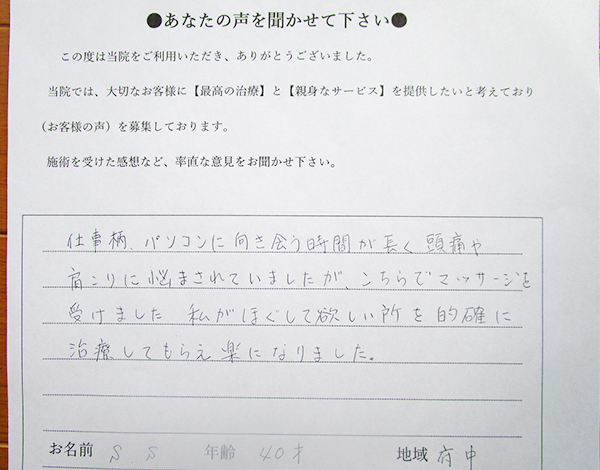 ●あなたの声を聞かせて下さい●
この度は当院をご利用いただき、ありがとうございました。
当院では、大切なお客様に【最高の治療】と【親身なサービス】を提供したいと考えており
（お客様の声）を募集しております。
施術を受けた感想など、率直な意見をお聞かせ下さい。
仕事柄、パソコンに向き会う時間が長く頭痛や
肩こりに悩まされていましたが、こちらでマッサージを
受けました 私がほぐして欲しい所を的確に
治療してもらえ楽になりました。
お名前 S.S 年齢 40才 地域 府中